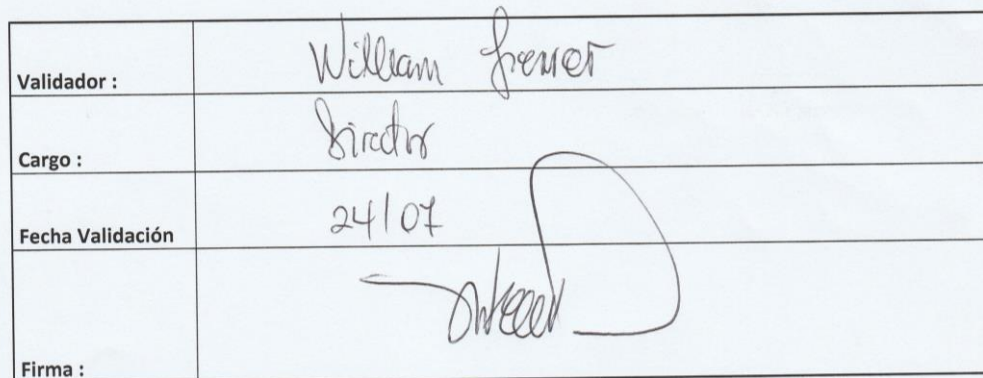 Validador : William
Cargo : Director
Fecha Validación 24/07
Firma :